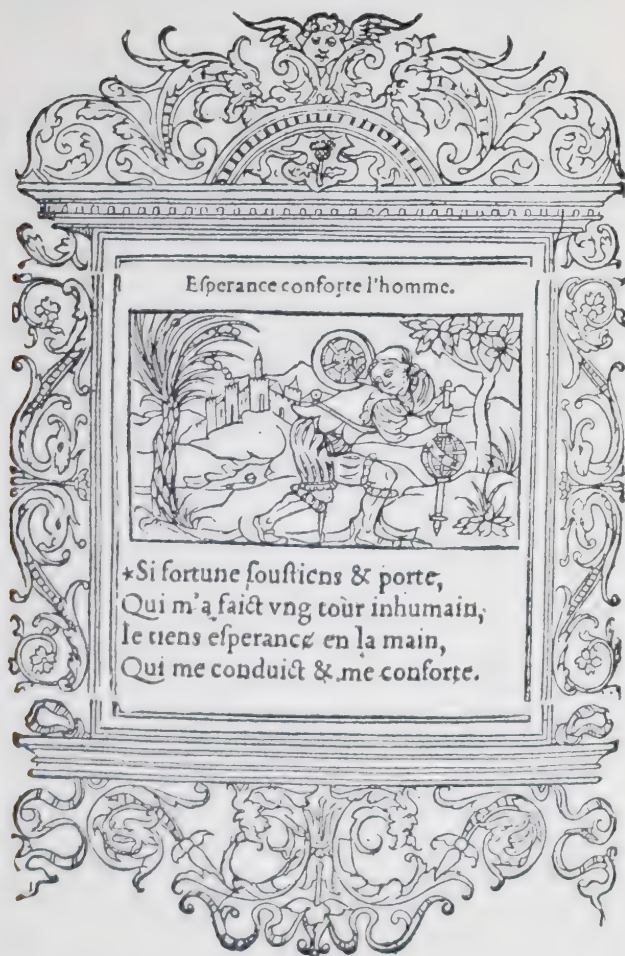 Eſperance conforte l'homme.
*Si fortune ſouſtiens & porte,
Qui m'a faict vng tour inhumain,
Ie tiens eſperance en la main,
Qui me conduict & me conforte.